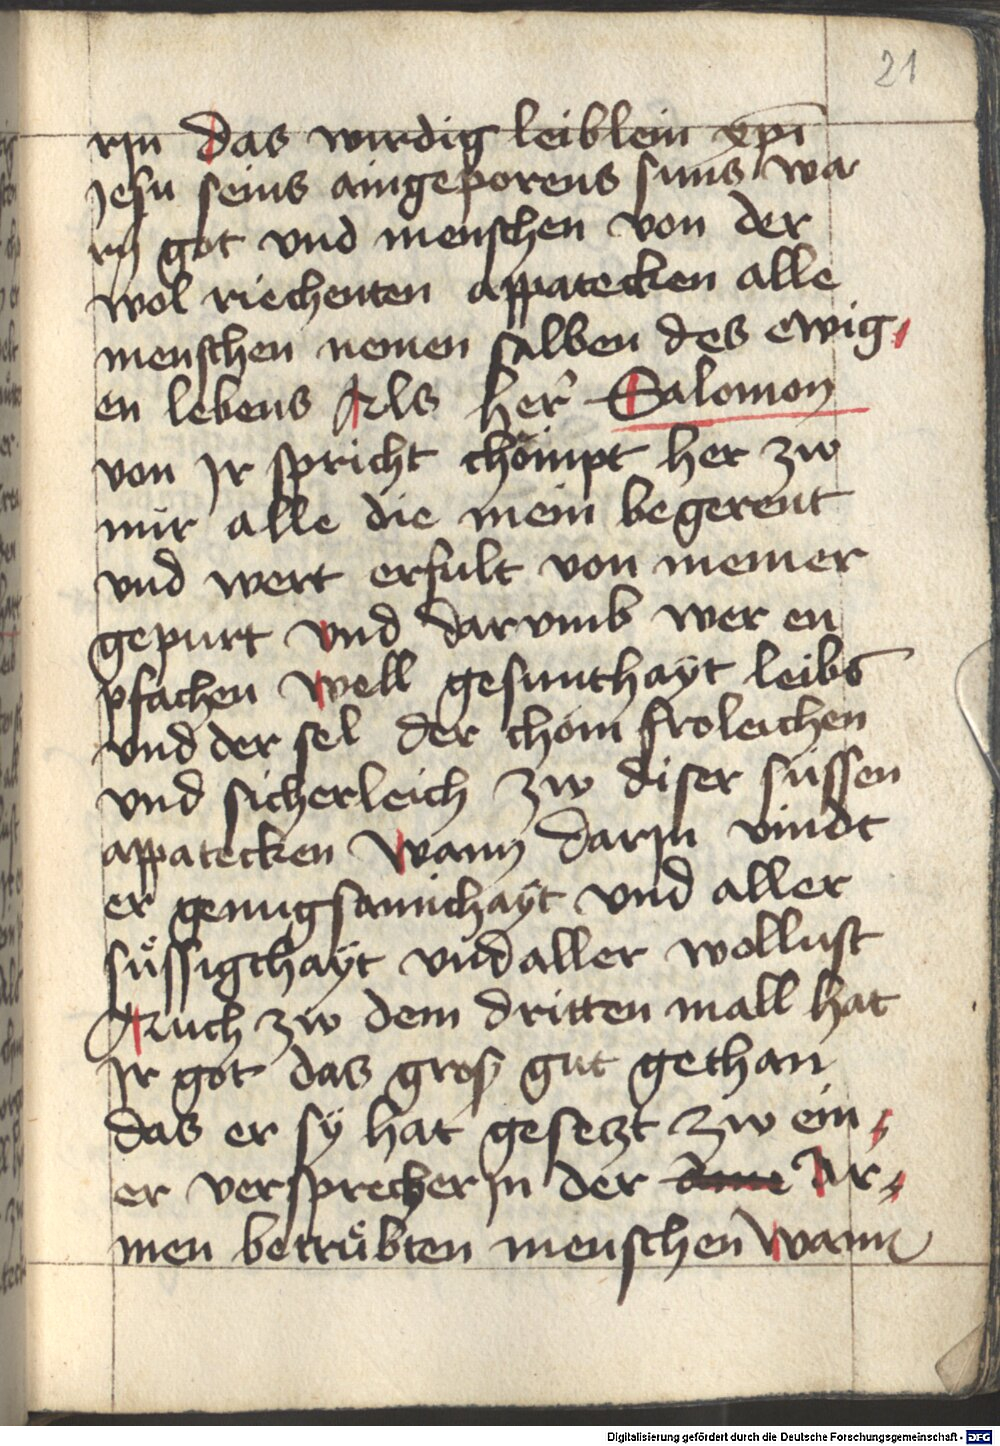 21
rin das wirdig leiblein xpi
Jesu seins aingeporens suns wa
rn got vnd menschen von der
wol riechenten appatecken alle
menschen nemen salben des ewig,
en lebens Als her Salomon
von Jr spricht chömpt her zw
mir alle die mein begerent
vnd wert erfult von meiner
gepurt vnd darvmb wer en
pfachen well gesunthayt leibs
vnd der sel der chöm froleichen
vnd sicherleich zw diser süssen
appatecken wann darin vindt
er genugsamichayt vnd aller
süssigchayt vnd aller wollust
Auch zw dem dritten mall hat
Jr got das gros gut gethan
das er sy hat gesetzt zw ein,
er versprecherin der Ar,
men betrübten menschen wann
Digitalisierung gefördert durch die Deutsche Forschungsgemeinschaft - DFG